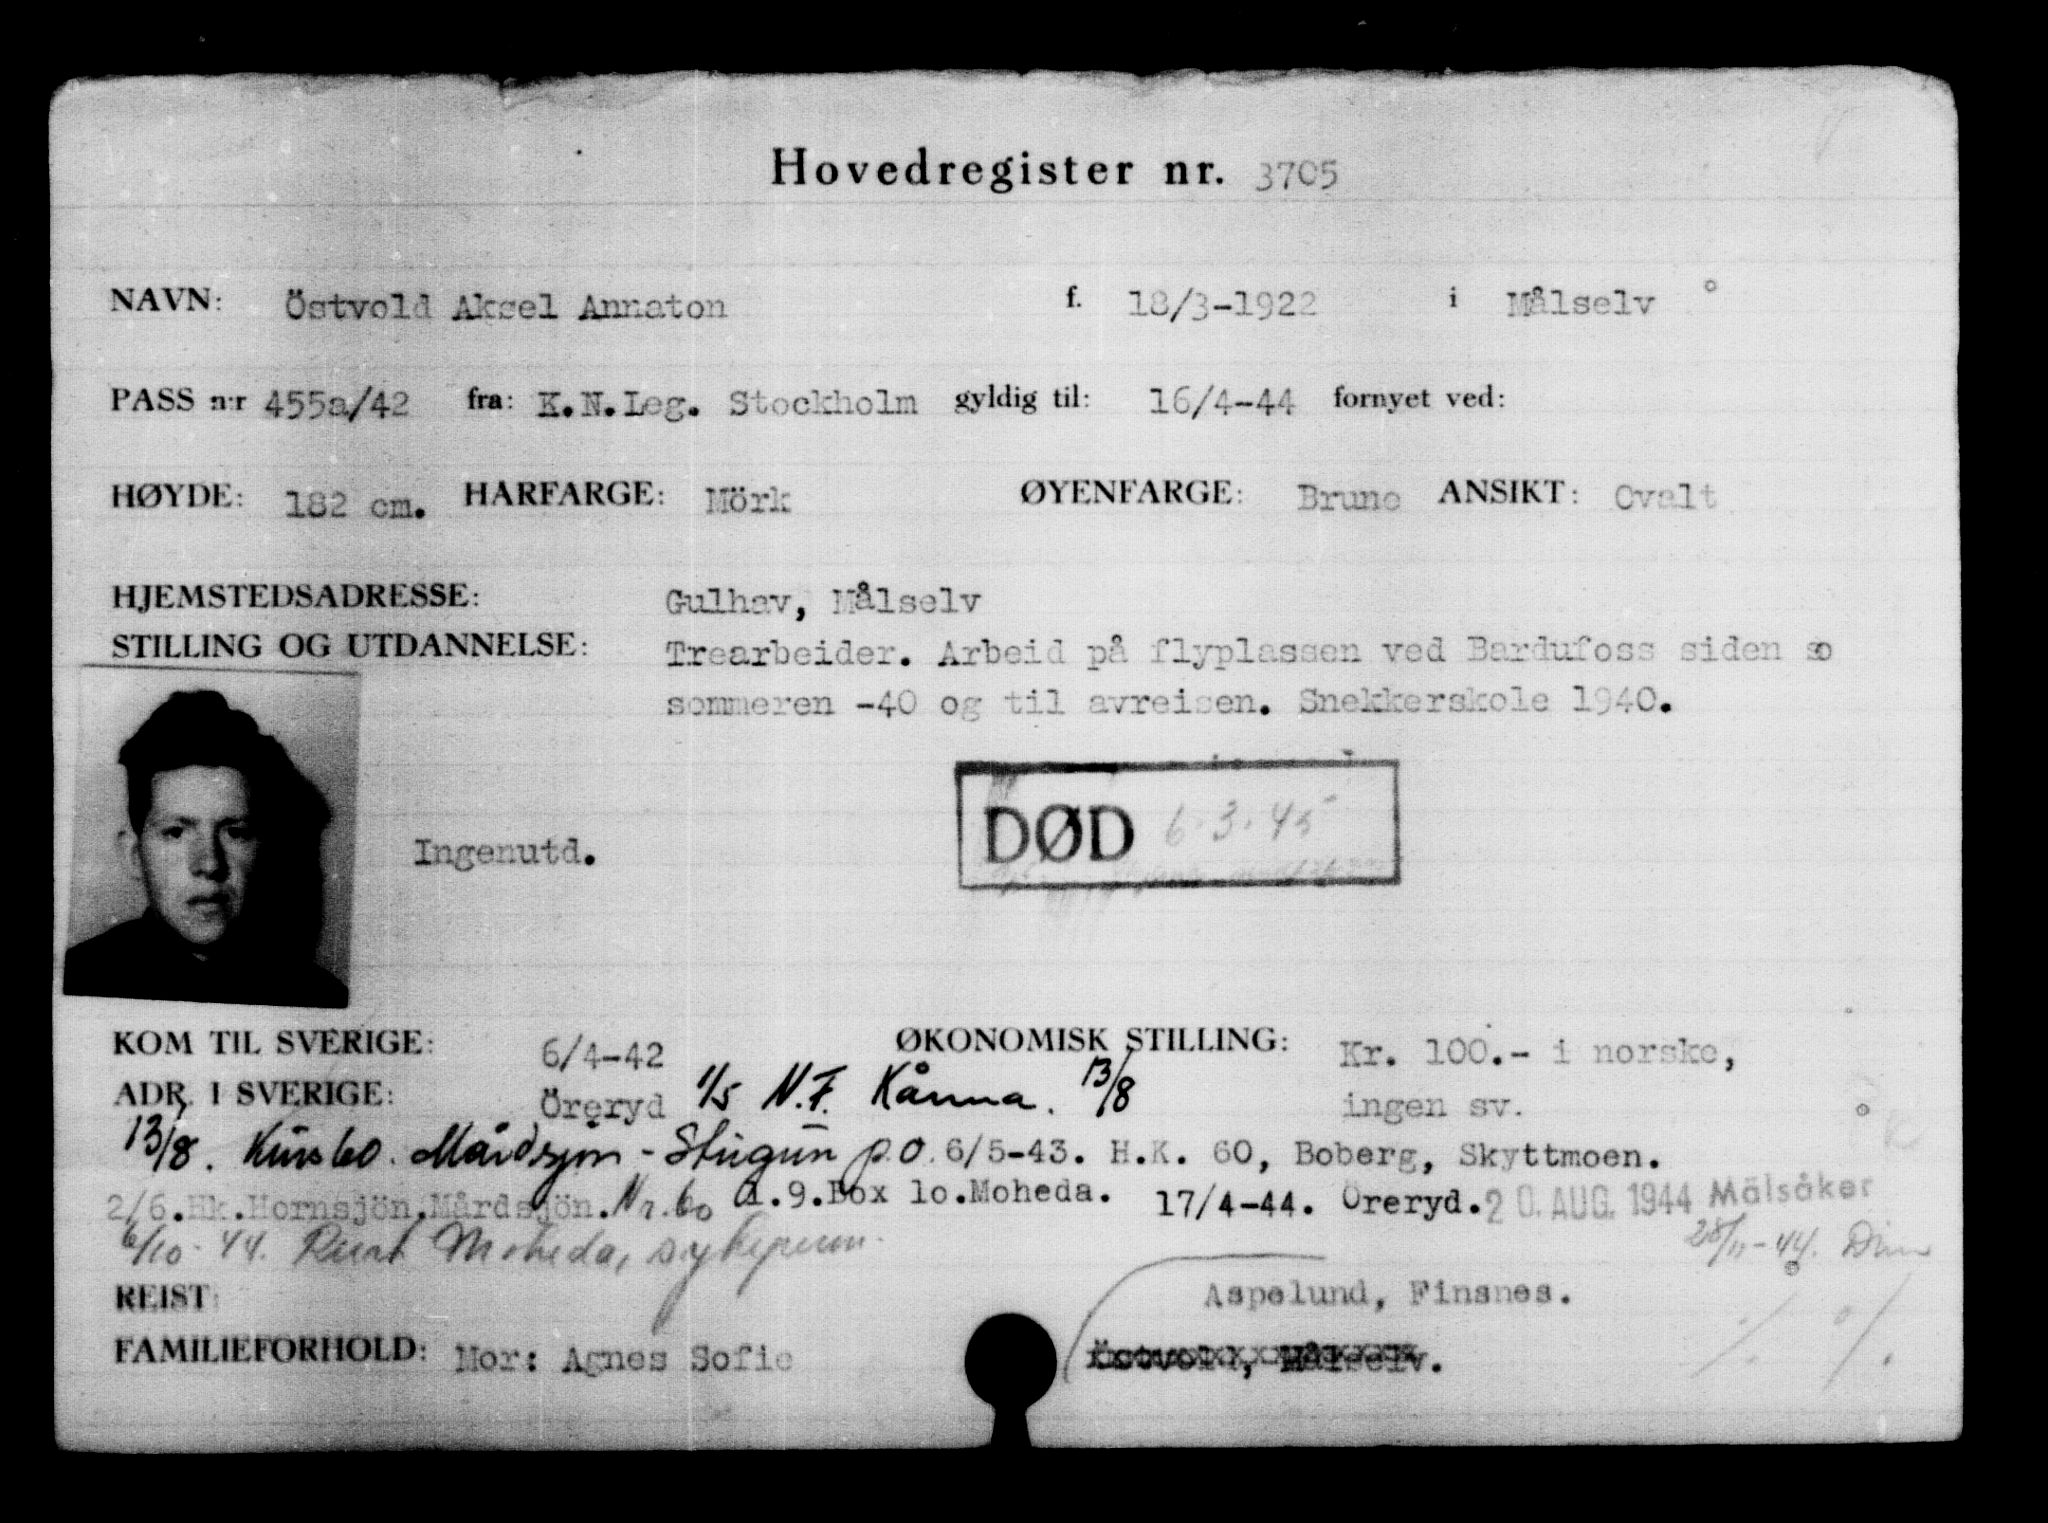 Hovedregister nr. 3705
NAVN: Östvold Aksel Annaton f. 18/3-1922 i Målselv
PASS nr 455a/42 fra: K.N.Leg. Stockholm gyldig til: 16/4-44 fornyet ved:
HØYDE: 182 cm. HÅRFARGE: Mörk ØYENFARGE: Brune ANSIKT: Ovalt
HJEMSTEDSADRESSE: Gulhav, Målselv
STILLING OG UTDANNELSE: Trearbeider. Arbeid på flyplassen ved Bardufoss siden so
sommeren -40 og til avreisen. Snekkerskole 1940.
DØD 6.3.45
Ingenutd.
KOM TIL SVERIGE: 6/4-42 ØKONOMISK STILLING: Kr. 100.- i norske,
ADR. I SVERIGE: Öreryd 1/5 N.F. Kånna. 13/8 ingen sv.
13/8. Mårdsjön - Stugun p.o. 6/5-43. H.K. 60, Boberg, Skyttmoen.
2/6.Hk.Hornsjön,Mårdsjön. Nr. 60 1.9.Box 10.Moheda. 17/4-44. Öreryd. 20. AUG. 1944 Mälsåker
6/10-44. Moheda, 28/11-44.
REIST: Aspelund, Finsnes.
FAMILIEFORHOLD: Mor: Agnes Sofie Östvold, Målselv.